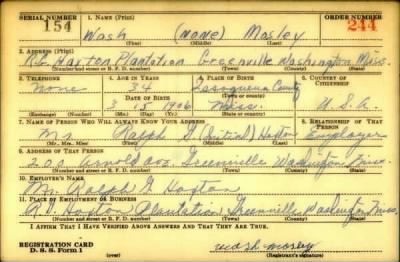 SERIAL NUMBER 1. NAME (Print) ORDER NUMBER
154 Wash (NONE) Mosley 244
(First) (Middle) (Last)
2. ADDRESS (Print)
Plantation Greenville Washington Miss.
(Number and street or R. F. D. number) (Town) (County) (State)
3. TELEPHONE 4. AGE IN YEARS 5. PLACE OF BIRTH 6. COUNTRY OF CITIZENSHIP
None 34 Issaquena County
DATE OF BIRTH
3 15 1906 Miss. U.S.A.
(Exchange) (Number) (Mo.) (Day) (Yr.) (State or country)
7. NAME OF PERSON WHO WILL ALWAYS KNOW YOUR ADDRESS 8. RELATIONSHIP OF THAT PERSON
Mr. Ralph G (Initial) Employer
(Mr., Mrs., Miss) (First) (Middle) (Last)
9. ADDRESS OF THAT PERSON
200 Arnold ave. Greenville Washington Miss.
(Number and street or R. F. D. number) (Town) (County) (State)
10. EMPLOYER'S NAME
Mr. Ralph G
11. PLACE OF EMPLOYMENT OR BUSINESS
Plantation, Greenville Washington Miss.
(Number and street or R. F. D. number) (Town) (County) (State)
I AFFIRM THAT I HAVE VERIFIED ABOVE ANSWERS AND THAT THEY ARE TRUE.
REGISTRATION CARD
D. S. S. Form 1 (over) wash mosley
(Registrant's signature)